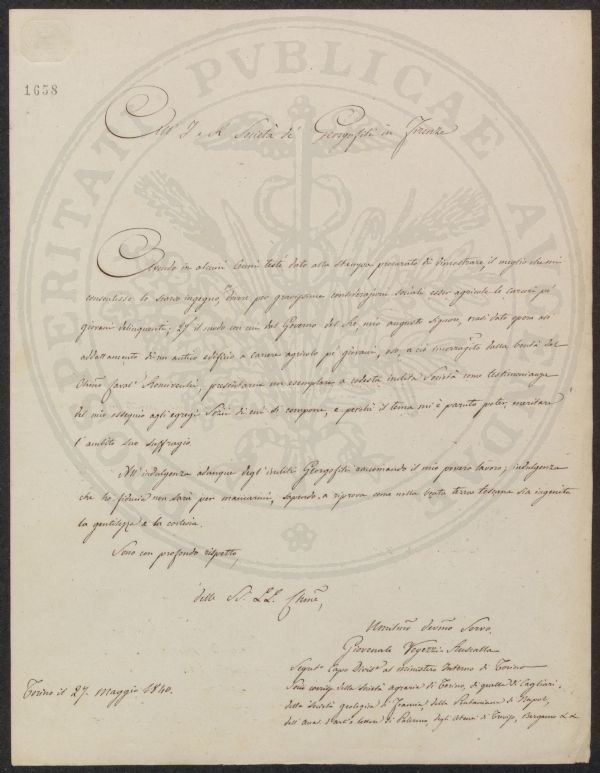 1658
All' I. e R. Società de' Georgofili in Firenze
Avendo in alcuni Cenni testè dato alla stampa procurato di dimostrare, il meglio che mi
consentisse lo scarso ingegno, dover per gravissime considerazioni sociali esser agricole le carceri pe'
giovani delinquenti; ed il modo con cui dal Governo del Re, mio augusto Signore, erasi dato opera all'
addattamento di un antico edificio a carcere agricolo pe' giovani, oso, a ciò incoraggito dalla bontà del
Chmo Cavalre, presentarne un esemplare a codesta inclita Società come testimonianza
del mio ossequio agli egregi Socii di cui si compone, e perchè il tema mi è paruto poter meritare
l'ambito suo suffragio.
All'indulgenza adunque degl'incliti Georgofili raccomando il mio povero lavoro; indulgenza
che ho fiducia non sarà per mancarmi, sapendo a riprova come nella beata terra toscana sia ingenita
la gentilezza e la cortesia.
Sono con profondo rispetto,
delle SS. LL. Chme,
Umilmo devmo Servo
Giovenale Vegezzi-Ruscalla
Capo Divise al ministero Interno di Torino
Socio corrisp. della Società agraria di Torino, di quella di Cagliari,
della Società geologica di Francia, della Pontaniana di Napoli,
dell'Accad. d'arti e lettere di Palermo, degli Atenei di Treviso, Bergamo &. &.
Torino il 27. Maggio 1840.
PROSPERITATI PVBLICAE AVGENDAE